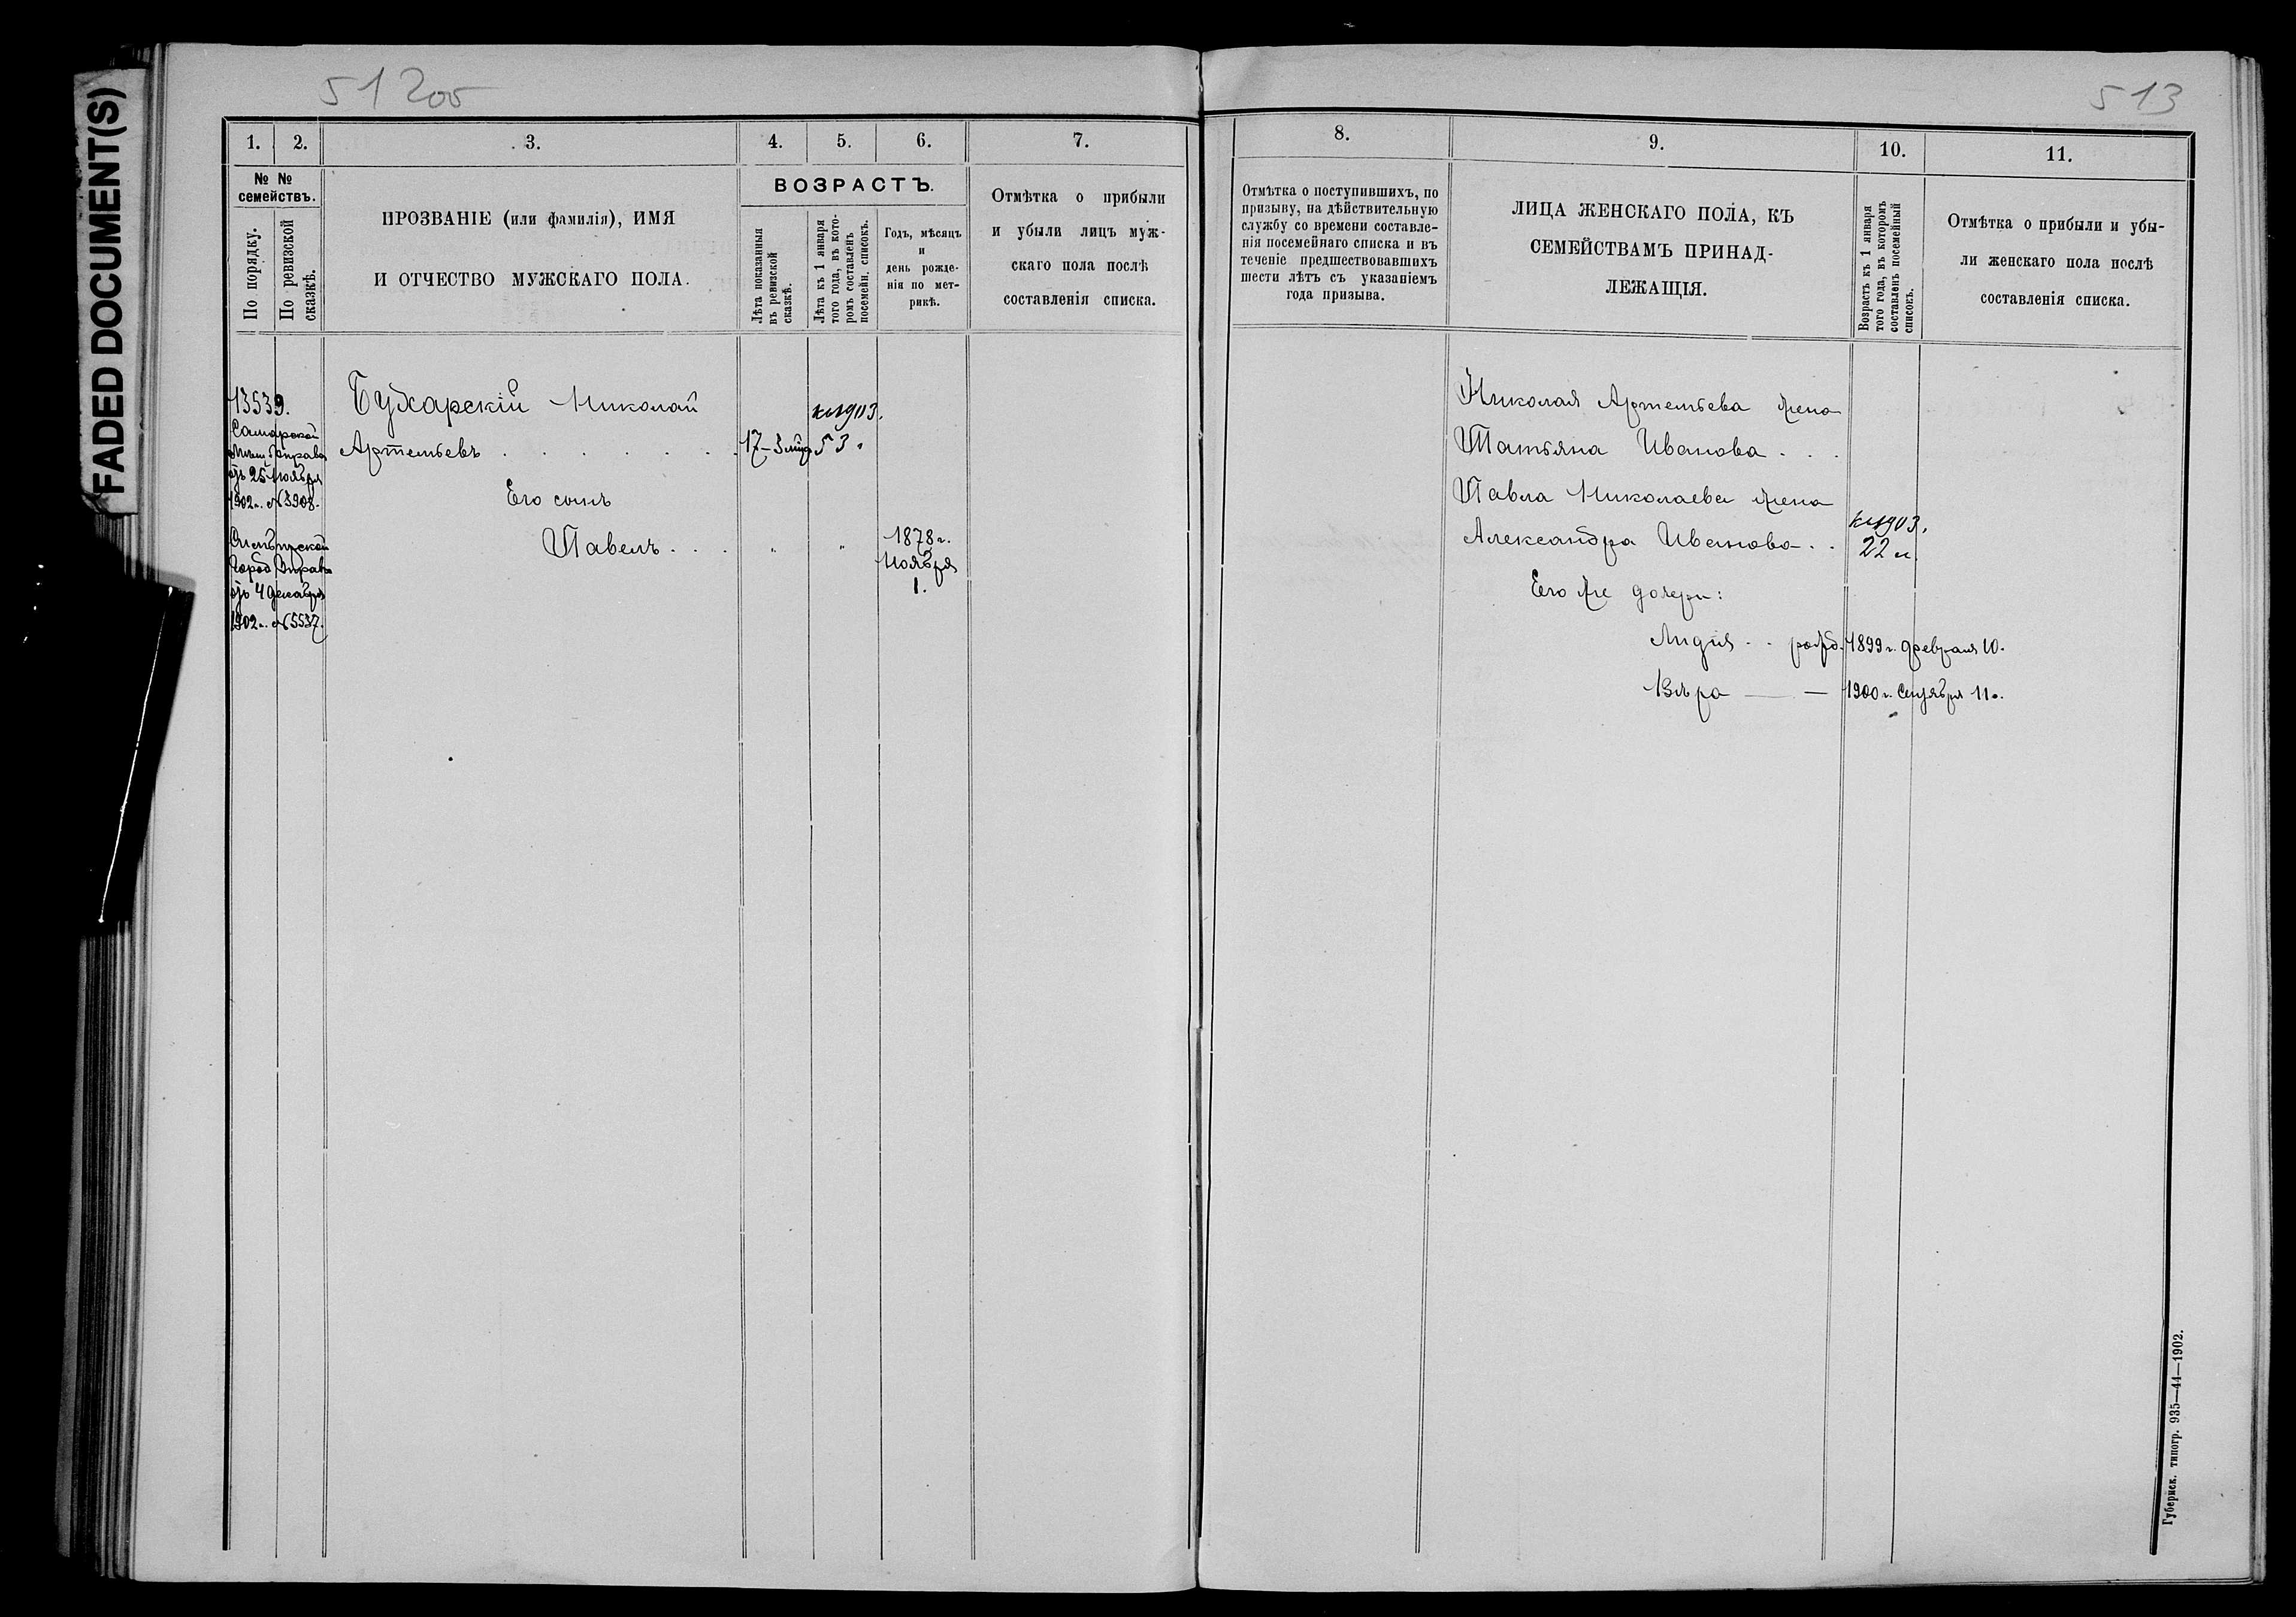 FADED DOCUMENT(S)
51 2об
1. 2. 3. 4. 5. 6. 7.
№ №
семействъ.
По порядку.
По ревизской
сказкѣ.
ПРОЗВАНІЕ (или фамилія), ИМЯ
И ОТЧЕСТВО МУЖСКАГО ПОЛА.
ВОЗРАСТЪ.
Лѣта показанныя
въ ревизской
сказкѣ.
Лѣта къ 1 января
того года, въ кото-
ромъ составленъ
посемейн. списокъ.
Годъ, мѣсяцъ
и
день рожде-
нія по мет-
рикѣ.
Отмѣтка о прибыли
и убыли лицъ муж-
скаго пола послѣ
составленія списка.
13539.
Самарской
Управы
отъ 25 Ноября
1902 г. № 3908.
Симбирской
Город Управы
отъ 4 декабря
1902 г. № 5537.
Бухарскій Николай
Артемьевъ . . . . . . .
17-3 мѣс
къ 1903.
53.
Его сынъ
Павелъ . . . " "
1878 г.
Ноября
1.
513
8. 9. 10. 11.
Отмѣтка о поступившихъ, по
призыву, на дѣйствительную
службу со времени составле-
нія посемейнаго списка и въ
теченіе предшествовавшихъ
шести лѣтъ съ указаніемъ
года призыва.
ЛИЦА ЖЕНСКАГО ПОЛА, КЪ
СЕМЕЙСТВАМЪ ПРИНАД-
ЛЕЖАЩІЯ.
Возрастъ къ 1 января
того года, въ которомъ
составленъ посемейный
списокъ.
Отмѣтка о прибыли и убы-
ли женскаго пола послѣ
составленія списка.
Николая Артемьева жена
Татьяна Иванова . . .
Павла Николаева жена
къ 1903.
Александра Иванова . . 22 л.
Его же дочери:
Лидія . . рожд. 1899 г. февраля 10.
Вѣра — — 1900 г. Сентября 11.
Губернск. типогр. 935—44—1902.